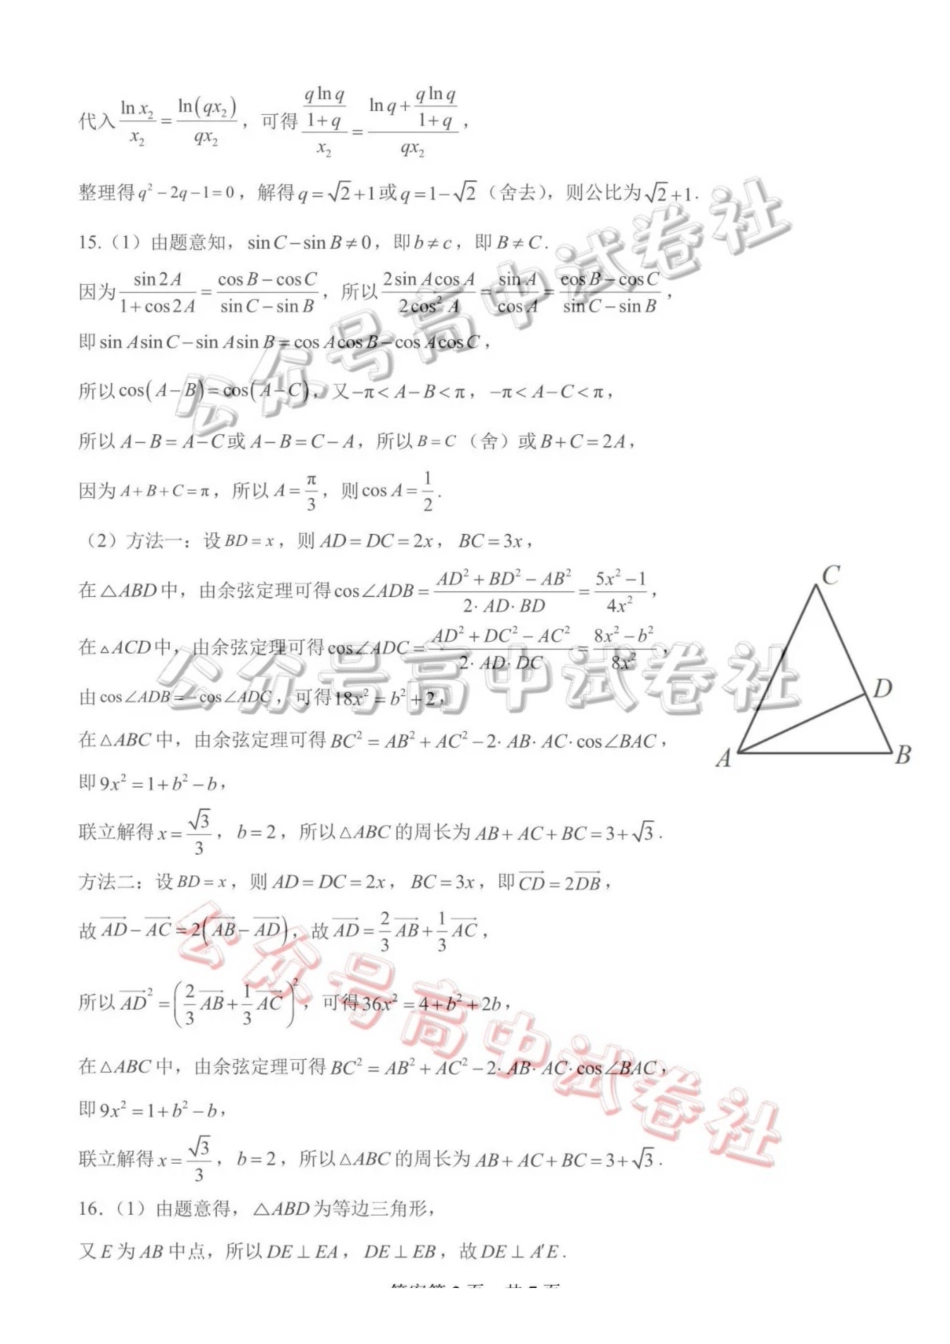 代入 ln x₂/x₂ = ln(qx₂)/(qx₂)，可得 (q ln q/(1+q))/x₂ = (ln q + q ln q/(1+q))/(qx₂)，
整理得 q² − 2q − 1 = 0，解得 q = √2 + 1 或 q = 1 − √2（舍去），则公比为 √2 + 1.
15.（1）由题意知，sin C − sin B ≠ 0，即 b ≠ c，即 B ≠ C.
因为 sin 2A/(1 + cos 2A) = (cos B − cos C)/(sin C − sin B)，所以 2 sin A cos A/(2 cos² A) = sin A/cos A = (cos B − cos C)/(sin C − sin B)，
即 sin A sin C − sin A sin B = cos A cos B − cos A cos C，
所以 cos(A − B) = cos(A − C)，又 −π < A − B < π，−π < A − C < π，
所以 A − B = A − C 或 A − B = C − A，所以 B = C（舍）或 B + C = 2A，
因为 A + B + C = π，所以 A = π/3，则 cos A = 1/2.
（2）方法一：设 BD = x，则 AD = DC = 2x，BC = 3x，
在 △ABD 中，由余弦定理可得 cos∠ADB = (AD² + BD² − AB²)/(2· AD· BD) = (5x² − 1)/(4x²)，
在 △ACD 中，由余弦定理可得 cos∠ADC = (AD² + DC² − AC²)/(2· AD· DC) = (8x² − b²)/(8x²)，
由 cos∠ADB = −cos∠ADC，可得 18x² = b² + 2，
在 △ABC 中，由余弦定理可得 BC² = AB² + AC² − 2· AB· AC· cos∠BAC，
即 9x² = 1 + b² − b，
联立解得 x = √3/3，b = 2，所以 △ABC 的周长为 AB + AC + BC = 3 + √3.
C
D
A
B
方法二：设 BD = x，则 AD = DC = 2x，BC = 3x，即 C͞D⃗ = 2D͞B⃗，
故 AD⃗ − AC⃗ = 2(AB⃗ − AD⃗)，故 AD⃗ = 2/3 AB⃗ + 1/3 AC⃗，
所以 AD⃗² = (2/3 AB⃗ + 1/3 AC⃗)²，可得 36x² = 4 + b² + 2b，
在 △ABC 中，由余弦定理可得 BC² = AB² + AC² − 2· AB· AC· cos∠BAC，
即 9x² = 1 + b² − b，
联立解得 x = √3/3，b = 2，所以 △ABC 的周长为 AB + AC + BC = 3 + √3.
16.（1）由题意得，△ABD 为等边三角形，
又 E 为 AB 中点，所以 DE ⊥ EA，DE ⊥ EB，故 DE ⊥ A′E.
公众号高中试卷社
公众号高中试卷社
公众号高中试卷社